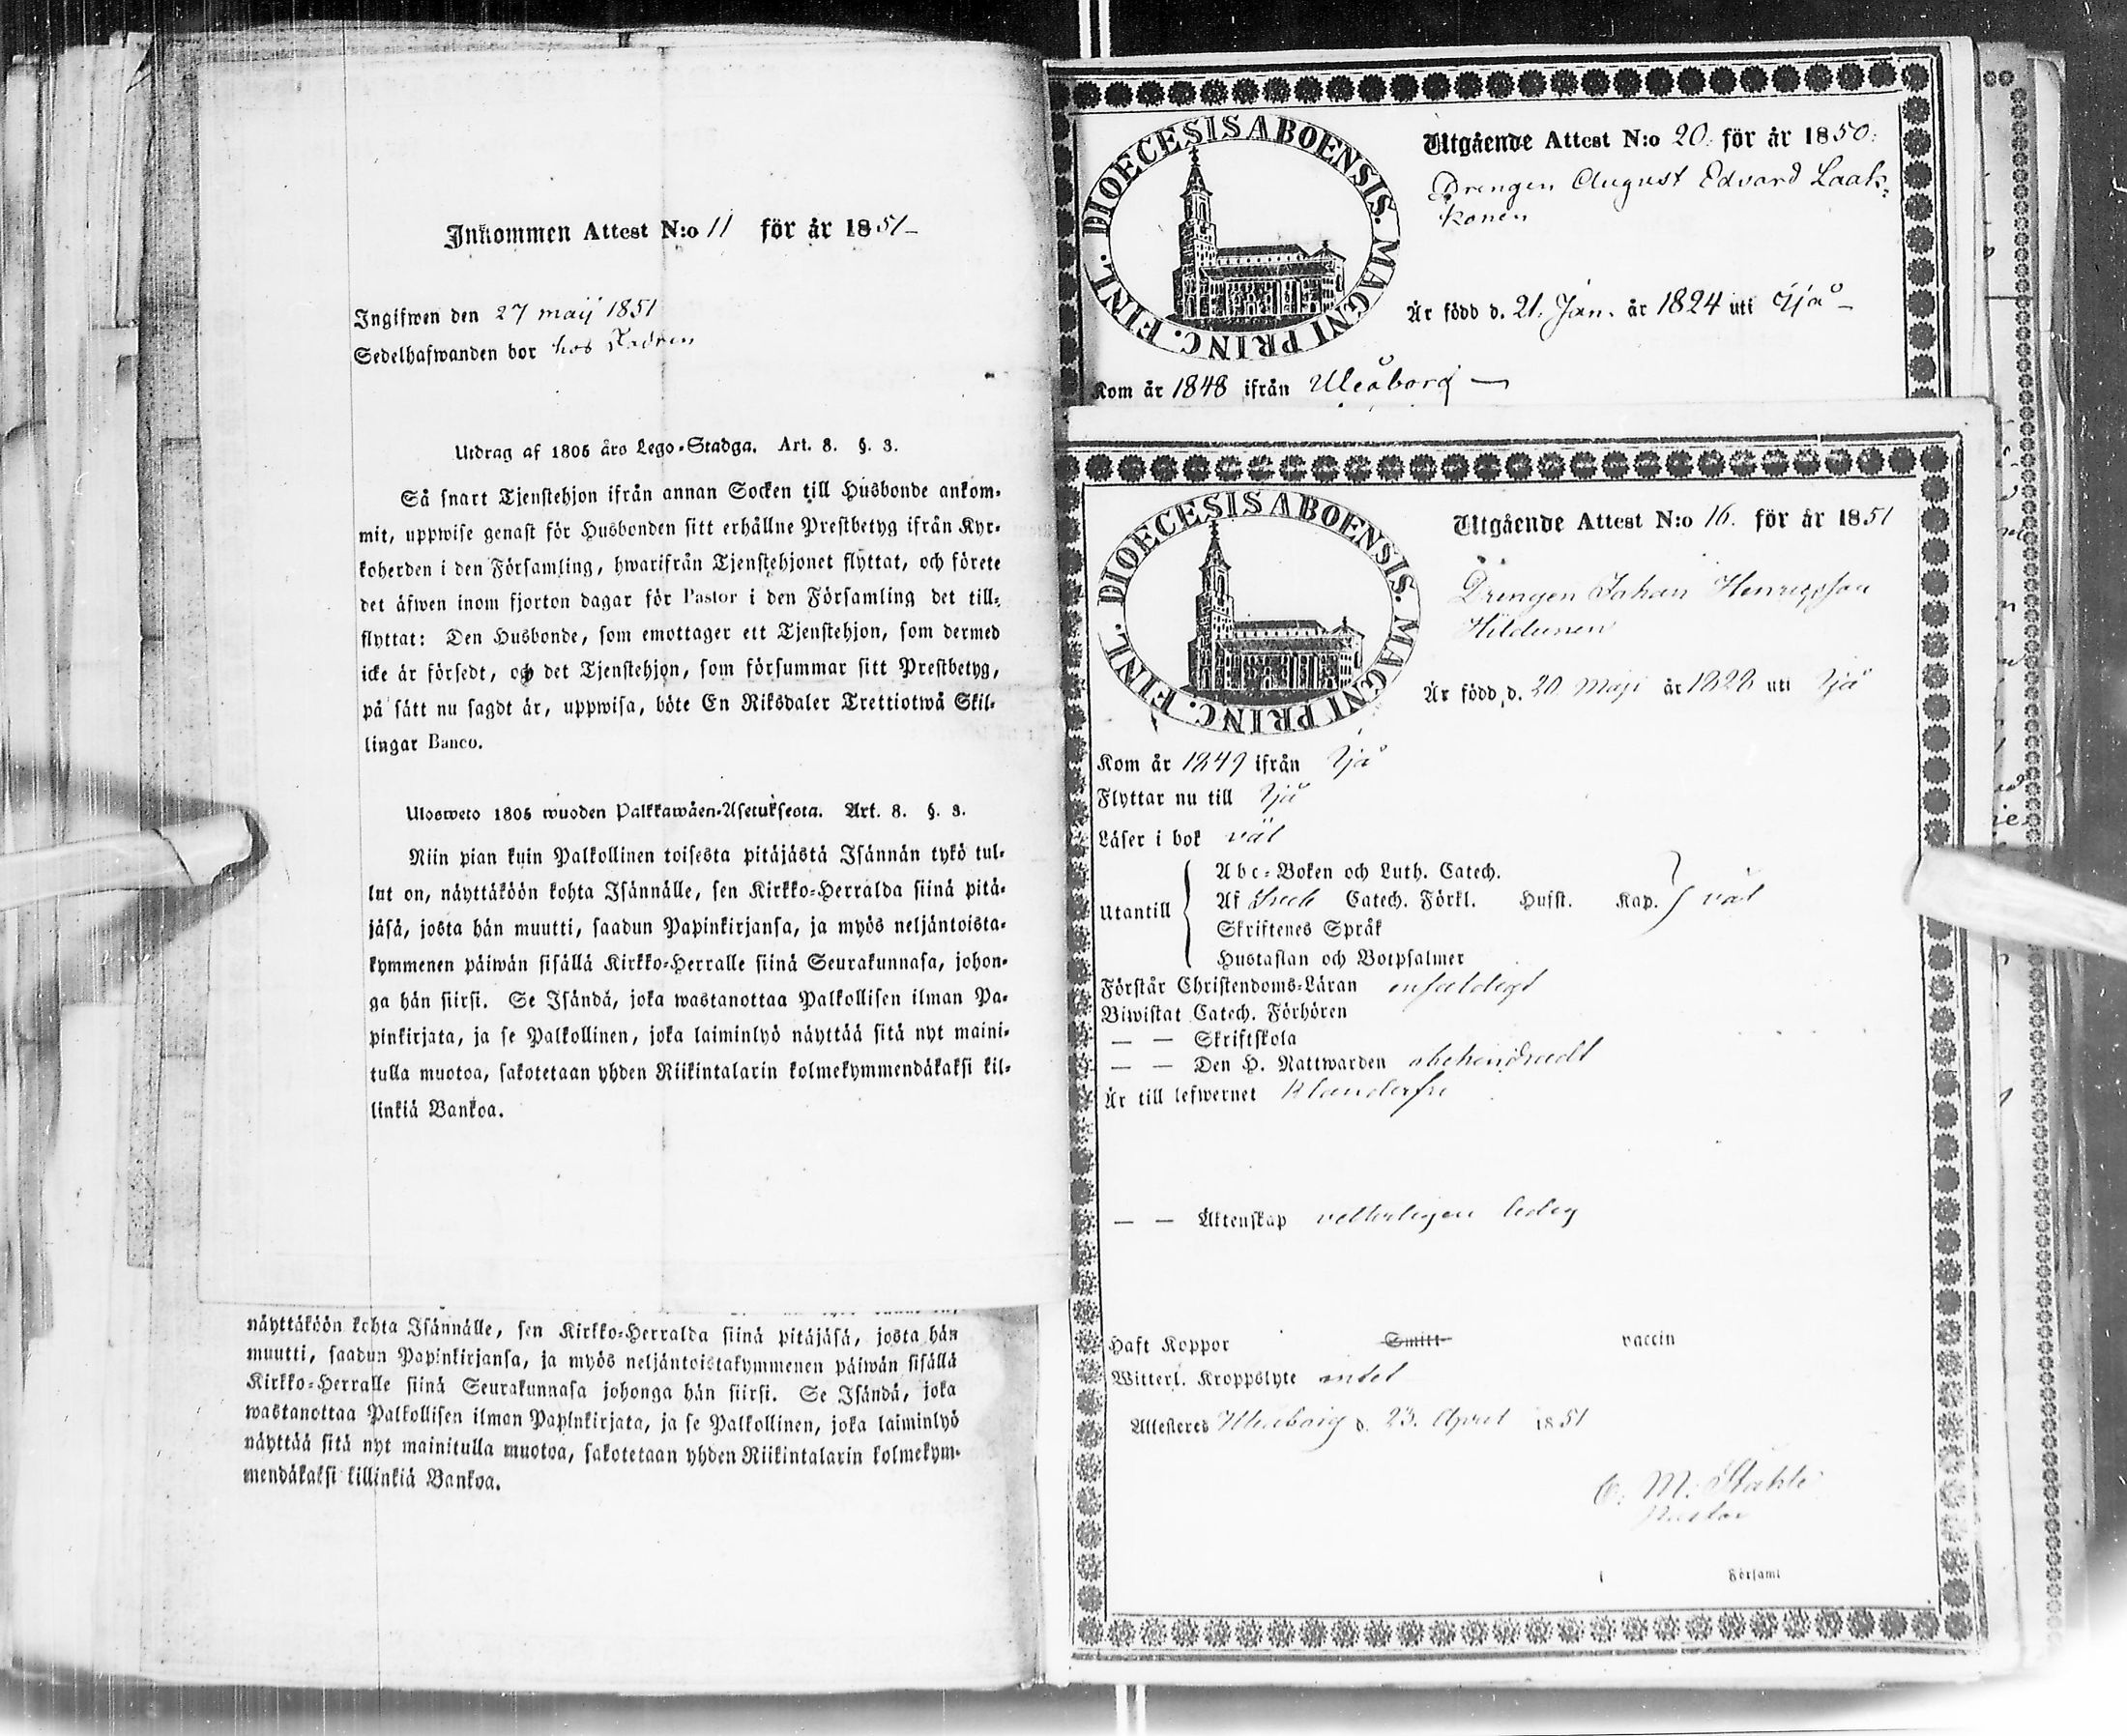 Inkommen Attest N:o 11 för år 1851
Ingifwen den 27 maij 1851
Sedelhafwanden bor hos Fadren
Utdrag af 1805 års Lego-Stadga. Art. 8. §. 3.
Så snart Tjenstehjon ifrån annan Socken till Husbonde ankom-
mit, uppwise genast för Husbonden sitt erhållne Prestbetyg ifrån Kyr-
koherden i den Församling, hwarifrån Tjenstehjonet flyttat, och förete
det äfwen inom fjorton dagar för Pastor i den Församling det till-
flyttat: Den Husbonde, som emottager ett Tjenstehjon, som dermed
icke är försedt, och det Tjenstehjon, som försummar sitt Prestbetyg,
på sätt nu sagdt är, uppwisa, böte En Riksdaler Trettiotwå Skil-
lingar Banco.
Ulosweto 1805 wuoden Palkkawäen-Asetuksesta. Art. 8. §. 3.
Niin pian kuin Palkollinen toisesta pitäjästä Isännän tykö tul-
lut on, näyttäköön kohta Isännälle, sen Kirkko-Herralda siinä pitä-
jäsä, josta hän muutti, saadun Papinkirjansa, ja myös neljäntoista-
kymmenen päiwän sisällä Kirkko-Herralle siinä Seurakunnasa, johon-
ga hän siirsi. Se Isändä, joka wastanottaa Palkollisen ilman Pa-
pinkirjata, ja se Palkollinen, joka laiminlyö näyttää sitä nyt maini-
tulla muotoa, sakotetaan yhden Riikintalarin kolmekymmendäkaksi kil-
linkiä Bankoa.
näyttäköön kohta Isännälle, sen Kirkko-Herralda siinä pitäjäsä, josta hän
muutti, saadun Papinkirjansa, ja myös neljäntoistakymmenen päiwän sisällä
Kirkko-Herralle siinä Seurakunnasa johonga hän siirsi. Se Isändä, joka
wastanottaa Palkollisen ilman Papinkirjata, ja se Palkollinen, joka laiminlyö
näyttää sitä nyt mainitulla muotoa, sakotetaan yhden Riikintalarin kolmekym-
mendäkaksi killinkiä Bankoa.
DIOECESIS ABOENSIS. MAGNI PRINC. FINL.
Utgående Attest N:o 20. för år 1850.
Drengen August Edvard Laak-
konen
Är född d. 21. Jan. år 1824 uti Ijå
Kom år 1848 ifrån Uleåborg
DIOECESIS ABOENSIS. MAGNI PRINC. FINL.
Utgående Attest N:o 16. för år 1851
Drengen Johan Henricsson
Hildunen
Är född d. 20 Maji år 1828 uti Ijå
Kom år 1849 ifrån Ijå
Flyttar nu till Ijå
Läser i bok väl
Utantill
Abc-Boken och Luth. Catech.
Af Catech. Förkl. Husst. Kap. väl
Skriftenes Språk
Hustaflan och Botpsalmer
Förstår Christendoms-Läran enfaldigt
Biwistat Catech. Förhören
— — Skriftskola
— — Den H. Nattwarden obehindradt
Är till lefwernet klanderfri
— — Äktenskap vetterligen ledig
Haft Koppor Smitt- vaccin
Witterl. Kroppslyte intet
Attesteras Uleåborg d. 23. April 1851
C. M. Ståhle
Pastor
i Församl